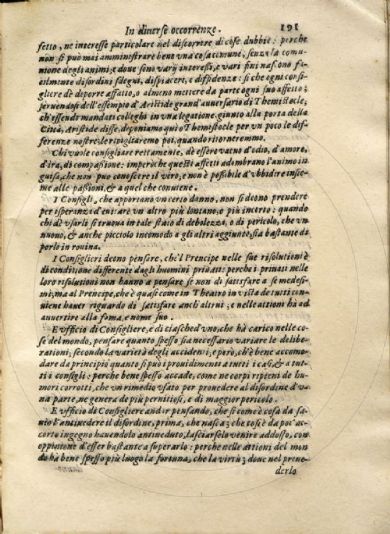 In diuerse occorrenze. 191
fetto, ne interesse particolare nel discorrer di cose dubbie: perche
non si può mai amministrare bene vna cosa comune, senza la comu-
nione degli animi; e doue sono varij interessi, e vari fini nascono fa-
cilmente disordini, sdegni, dispiaceri, e diffidenze: si che ogni consi-
gliere dè deporre affatto, o almeno mettere da parte ogni suo affetto;
seruendosi dell'essempio d'Aristide grand'auuersario di Themistocle,
ch'essendo mandati colleghi in vna legatione, giunto alla porta della
Città, Aristide disse, deponiamo quì o Themistocle per vn poco le dif-
ferenze nostre, le ripigliaremo poi, quando ritorneremmo.
Chi vuole consigliar rettamente, dè essere vuoto d'odio, d'amore,
d'ira, di compassione: imperòche questi affetti adombrano l'animo in
guisa, che non può conoscere il vero, e non è possibile d'vbbidire insie-
me alle passioni, & a quel che conuiene.
I Consigli, che apportano vn certo danno, non si deono prendere
per isperanza d'euitare vn altro più lontano, e più incerto: quando
chi dè vsarli si truoua in tale stato di debolezza, o di pericolo, che vn
nuouo, & anche picciolo incomodo a gli altri aggiunto, sia bastante di
porlo in rouina.
I Consiglieri deono pensare, che'l Prencipe nelle sue risolutioni è
di conditione differente dagli huomini priuati: perche i priuati nelle
loro risolutioni non hanno a pensare se non di satisfare a se medesi-
mi, ma al Prencipe, che è quasi come in Theatro in vista de tutti con-
uiene hauer riguardo di satisfare anch'altrui; e nelle attioni ha ad
auuertire alla fama, e nome suo.
E vfficio di Consigliere, e di ciasched'vno, che hà carico nelle co-
se del mondo, pensare quanto spesso sia necessario variare le delibe-
rationi, secondo la varietà degli accidenti, e però, ch'è bene accomo-
dare da principio quanto si può i prouedimenti a tutti i casi, & a tut-
ti i consigli: perche bene spesso accade, come ne corpi ripieni de hu-
mori corrotti, che vn rimedio vsato per prouedere al disordine d'v-
na parte, ne genera de più pernitiosi, e di maggior pericolo.
E vfficio di Consigliere andar pensando, che si come è cosa da sa-
uio l'antiuedere il disordine, prima, che nasca; che così è da poc'ac-
corto ingegno hauendolo antiueduto, lasciarselo venire addosso, con
oppinione d'esser bastante a superarlo: perche nelle attioni del mon
do hà bene spesso più luogo la fortuna, che la virtù; doue nel preue-
derlo